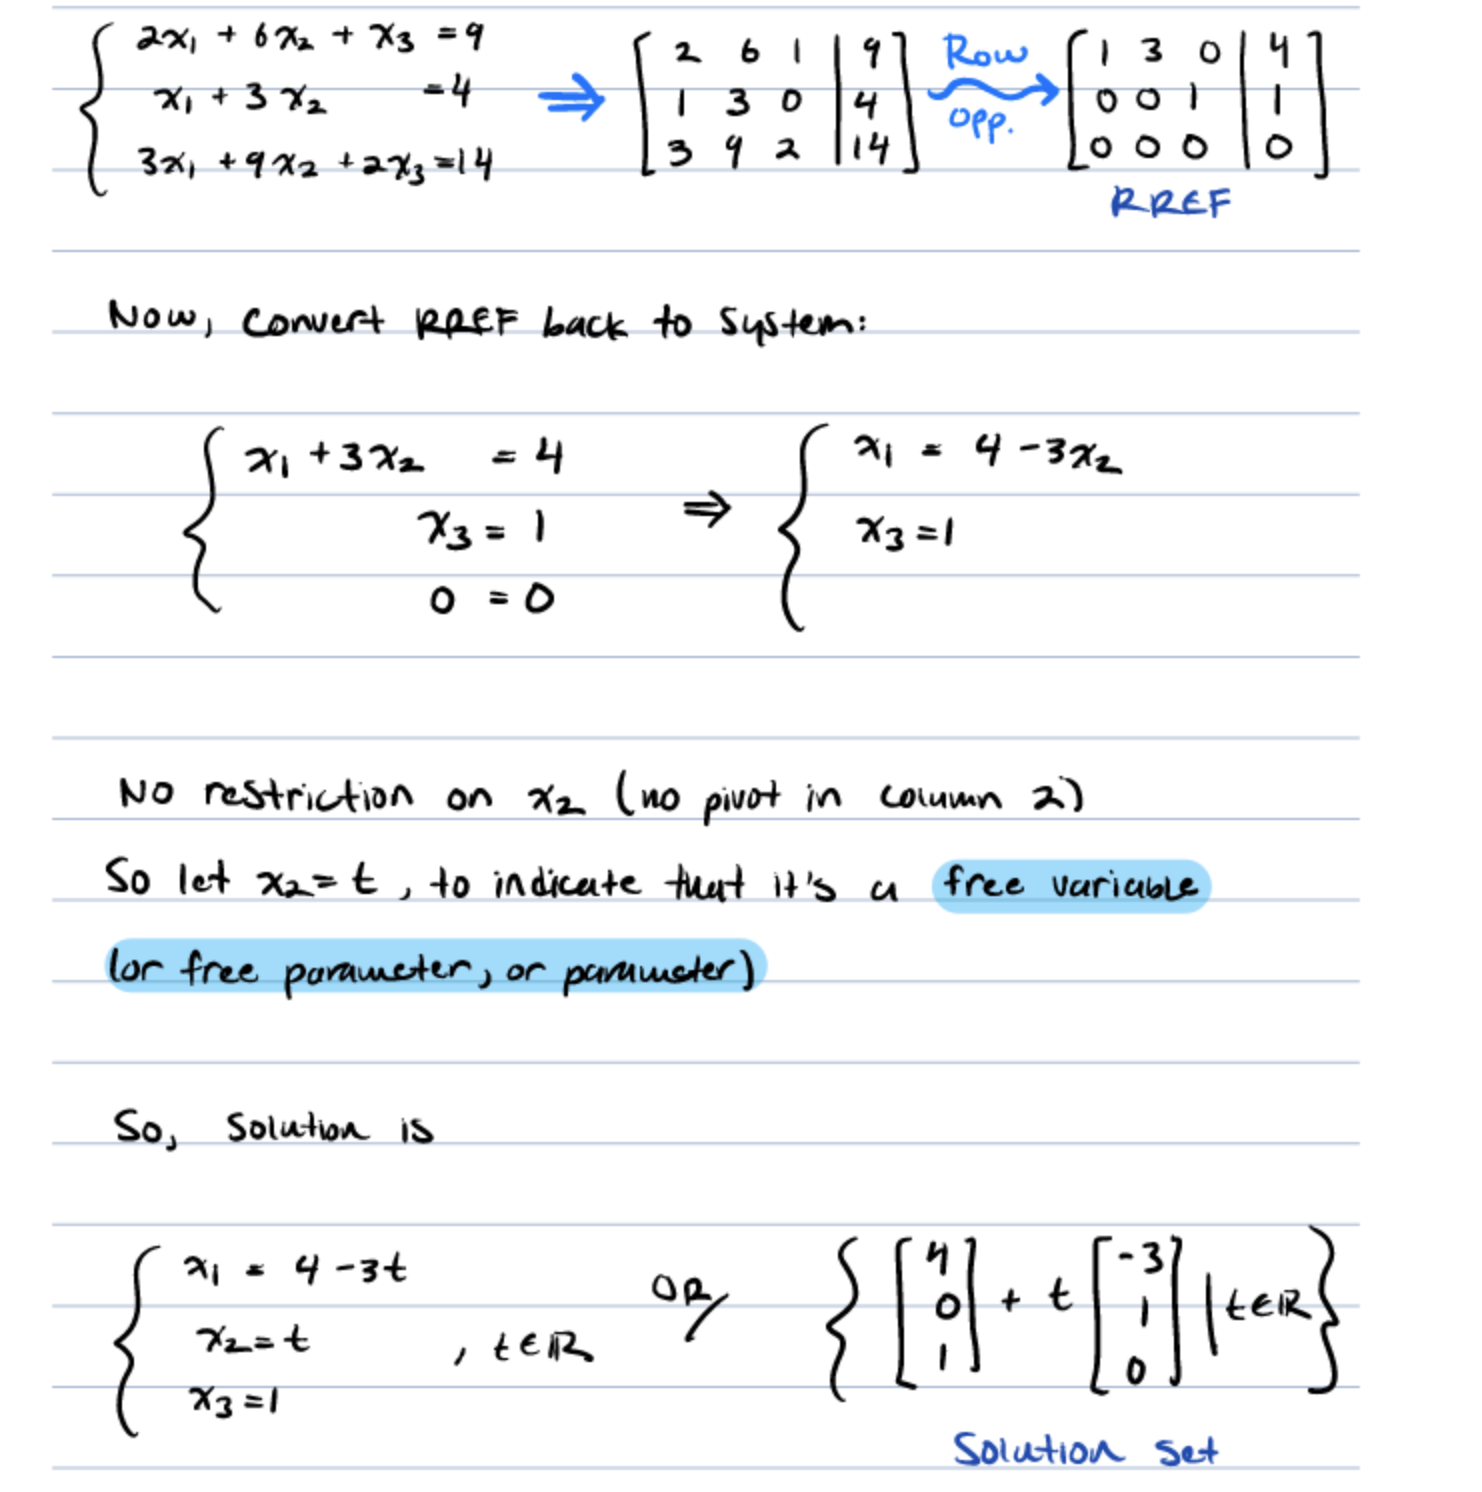 2x₁ + 6x₂ + x₃ = 9
x₁ + 3x₂ = 4
3x₁ + 9x₂ + 2x₃ = 14
⇒
[ 2 6 1 | 9 ]
[ 1 3 0 | 4 ]
[ 3 9 2 | 14 ]
Row
opp.
[ 1 3 0 | 4 ]
[ 0 0 1 | 1 ]
[ 0 0 0 | 0 ]
RREF
Now, convert RREF back to system:
x₁ + 3x₂ = 4
x₃ = 1
0 = 0
⇒
x₁ = 4 - 3x₂
x₃ = 1
No restriction on x₂ (no pivot in column 2)
So let x₂ = t, to indicate that it's a free variable
(or free parameter, or parameter)
So, Solution is
x₁ = 4 - 3t
x₂ = t , t ∈ ℝ
x₃ = 1
OR
{ [4 0 1] + t [-3 1 0] | t ∈ ℝ }
Solution set